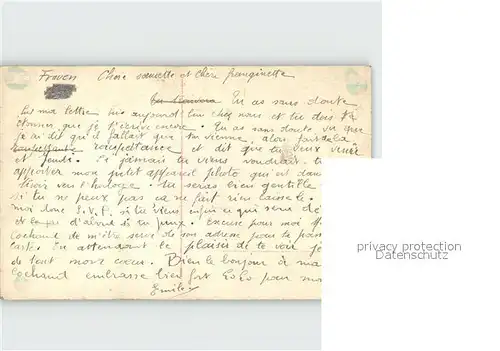 Chère soeurette et chère franginette
Tu as sans doute
lu ma lettre hier aujourd'hui chez nous et tu dois t'é
tonner que je t'écrive encore. Tu as sans doute vu que
je ai dit qu'il fallait que tu vienne, alors
et dit que tu veux venir
et Jeudi. Si jamais tu viens voudrais-t
apporter mon petit appareil photo qui est dans
tiroir vers l'horloge. Tu seras bien gentille
si tu ne peux pas ça ne fait rien laisse le.
moi donc S.V.P. si tu viens enfin ce qui sera dé
et d'abord si tu peux. excuse pour moi M
Cochaud de m'être servi de son adresse pour te
carte. En attendant le plaisir de te voir je
de tout mon coeur. Bien le bonjour à ma
Cochaud embrasse bien fort Lolo pour moi
Emile
privacy protection
Datenschutz